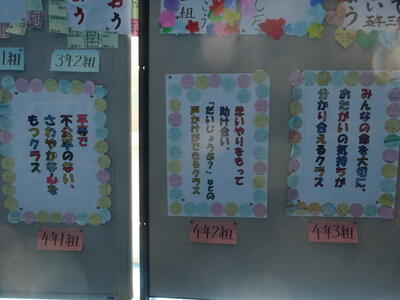 1組
3年2組
平等で
不公平のない、
さわやかな心を
もつクラス
4年1組
思いやりをもって
助け合い、
「だいじょうぶ？」などの
声かけができるクラス
4年2組
みんなの命を大切に、
おたがいの気持ちが
分かり合えるクラス
4年3組